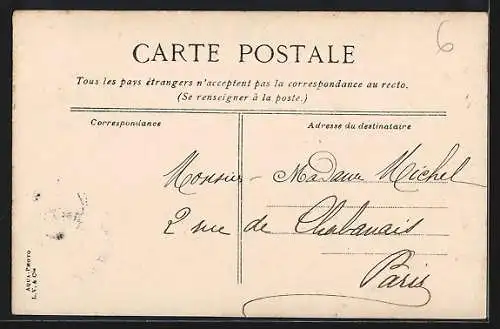 6
CARTE POSTALE
Tous les pays étrangers n'acceptent pas la correspondance au recto.
(Se renseigner à la poste.)
Correspondance
Adresse du destinataire
Monsieur - Madame Michel
2 rue de Chabanais
Paris
AQUA-PHOTO
L. V. & Cie